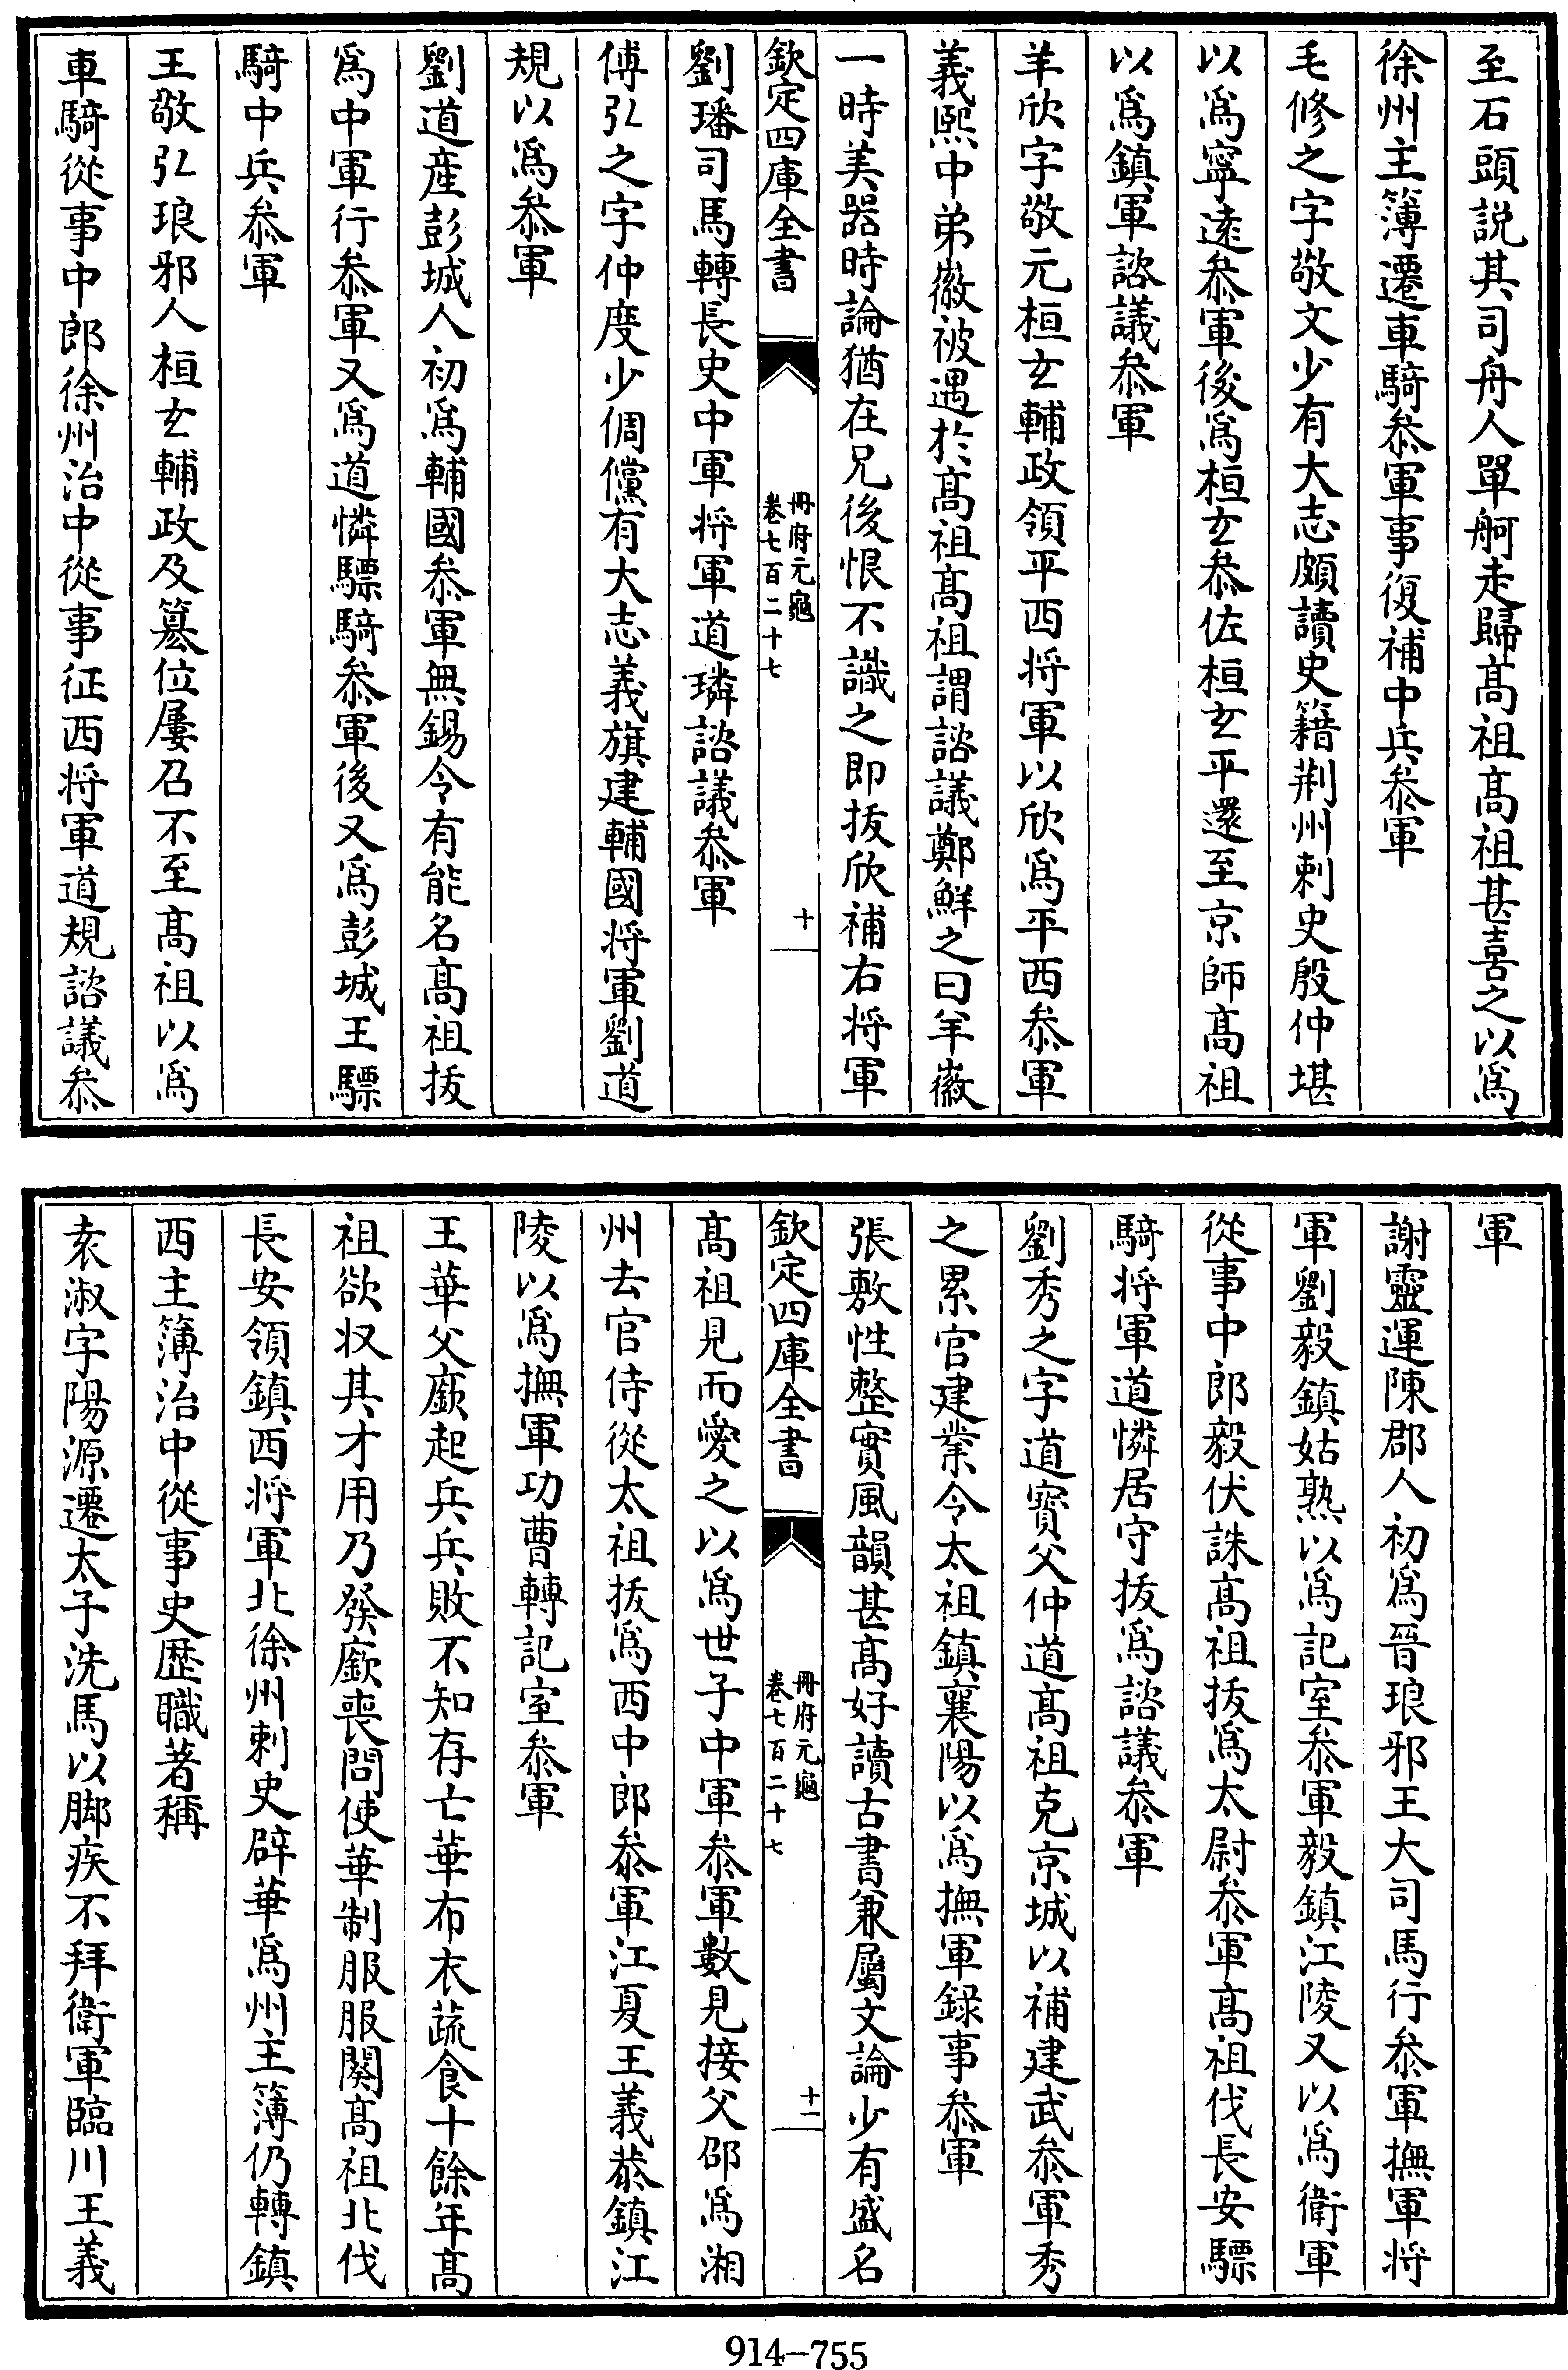 至石頭説其司舟人單舸走歸髙祖髙祖甚喜之以爲
徐州主簿遷車騎叅軍事復補中兵叅軍
毛修之字敬文少有大志頗讀史籍荆州刺史殷仲堪
以爲寧逺叅軍後爲桓玄叅佐桓玄平還至京師髙祖
以爲鎮軍諮議叅軍
羊欣字敬元桓玄輔政領平西将軍以欣爲平西叅軍
義熙中弟徽被遇於髙祖髙祖謂諮議鄭鮮之曰羊徽
一時美器時論猶在兄後恨不識之即拔欣補右将軍
欽定四庫全書
冊府元龜
卷七百二十七
十
劉璠司馬轉長史中軍将軍道璘諮議叅軍
傅弘之字仲度少倜儻有大志義旗建輔國将軍劉道
規以爲叅軍
劉道産彭城人初爲輔國叅軍無錫令有能名髙祖拔
爲中軍行叅軍又爲道憐驃騎叅軍後又爲彭城王驃
騎中兵叅軍
王敬弘琅邪人桓玄輔政及簒位屢召不至髙祖以爲
車騎從事中郎徐州治中從事征西将軍道規諮議叅
軍
謝靈運陳郡人初爲晉琅邪王大司馬行叅軍撫軍将
軍劉毅鎮姑熟以爲記室叅軍毅鎮江陵又以爲衛軍
從事中郎毅伏誅髙祖拔爲太尉叅軍髙祖伐長安驃
騎将軍道憐居守拔爲諮議叅軍
劉秀之字道寳父仲道髙祖克京城以補建武叅軍秀
之累官建業令太祖鎮襄陽以爲撫軍録事叅軍
張敷性整實風韻甚髙好讀古書兼屬文論少有盛名
欽定四庫全書
冊府元龜
卷七百二十七
十一
髙祖見而愛之以爲世子中軍叅軍數見接父邵爲湘
州去官侍從太祖拔爲西中郎叅軍江夏王義恭鎮江
陵以爲撫軍功曹轉記室叅軍
王華父廞起兵兵敗不知存亡華布衣蔬食十餘年髙
祖欲収其才用乃發廞喪問使華制服服闋髙祖北伐
長安領鎮西将軍北徐州刺史辟華爲州主簿仍轉鎮
西主簿治中從事史歴職著稱
袁淑字陽源遷太子洗馬以脚疾不拜衛軍臨川王義
914-755